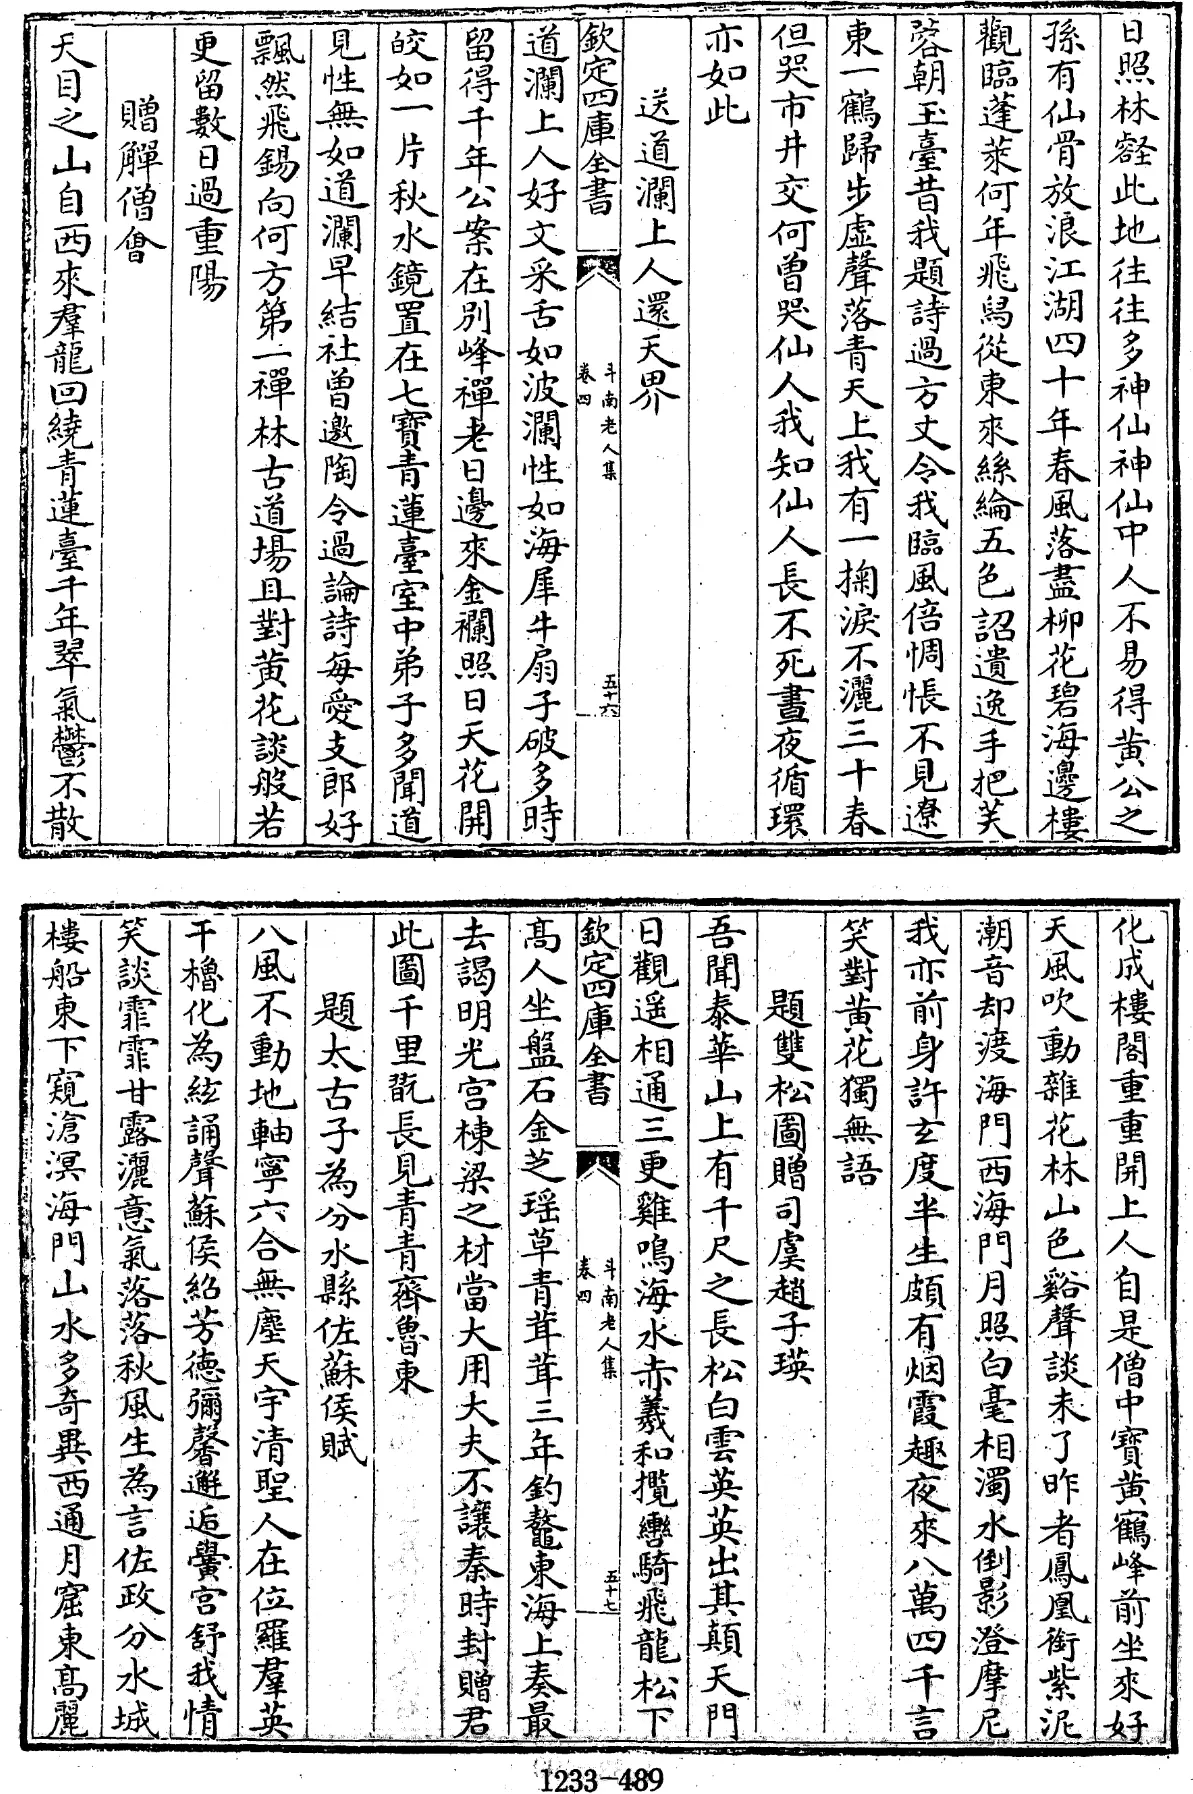 日照林壑此地往往多神仙神仙中人不易得黄公之
孫有仙骨放浪江湖四十年春風落盡柳花碧海邊樓
觀臨蓬萊何年飛舄從東來絲綸五色詔遺逸手把芙
蓉朝玉臺昔我題詩過方丈令我臨風倍惆悵不見遼
東一鶴歸步虛聲落青天上我有一掬淚不灑三十春
但哭市井交何曾哭仙人我知仙人長不死晝夜循環
亦如此
送道瀾上人還天界
欽定四庫全書
斗南老人集
卷四
五十六
道瀾上人好文采舌如波瀾性如海犀牛扇子破多時
留得千年公案在別峰禪老日邊來金襴照日天花開
皎如一片秋水鏡置在七寶青蓮臺室中弟子多聞道
見性無如道瀾早結社曾邀陶令過論詩每愛支郎好
飄然飛錫向何方第一禪林古道場且對黄花談般若
更留數日過重陽
贈觧僧會
天目之山自西來羣龍回繞青蓮臺千年翠氣鬱不散
化成樓閣重重開上人自是僧中寶黄鶴峰前坐來好
天風吹動雜花林山色谿聲談未了昨者鳳凰銜紫泥
潮音却渡海門西海門月照白毫相濁水倒影澄摩尼
我亦前身許玄度半生頗有烟霞趣夜來八萬四千言
笑對黄花獨無語
題雙松圖贈司虞趙子瑛
吾聞泰華山上有千尺之長松白雲英英出其顛天門
日觀遥相通三更雞鳴海水赤羲和攬轡騎飛龍松下
欽定四庫全書
斗南老人集
卷四
五十七
髙人坐盤石金芝瑶草青茸茸三年釣鼇東海上奏最
去謁明光宫棟梁之材當大用大夫不讓秦時封贈君
此圖千里翫長見青青齊魯東
題太古子為分水縣佐蘇侯賦
八風不動地軸寧六合無塵天宇清聖人在位羅羣英
干櫓化為絃誦聲蘇侯紹芳德彌馨邂逅黌宫舒我情
笑談霏霏甘露灑意氣落落秋風生為言佐政分水城
樓船東下窺滄溟海門山水多奇異西通月窟東髙麗
1233-489